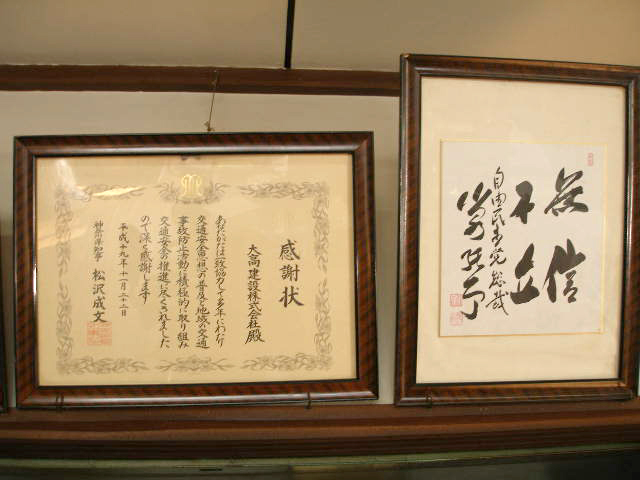 感謝状
大高建設株式会社殿
あなたがたは一致協力して多年にわたり
交通安全思想の普及と地域の交通
事故防止活動に積極的に取り組み
交通安全の推進に尽くされました
ので深く感謝します
平成十九年十一月二十二日
神奈川県知事 松沢成文
無信
不立
自由民主党総裁